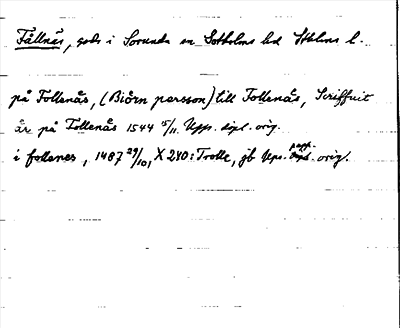 Fållnäs, gods i Sorunda sn Sotholms hd Sthlms l.
på Follenås, (Biörn persson) till Follenås, Scriffuit
är på Follenås 1544 15/11. Upps. dipl. orig.
i follanes, 1487 29/10, X 240: Trolle, jb Ups. papp. dipl. orig.